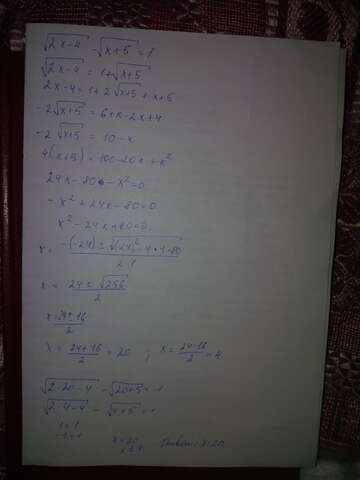 √2x-4 - √x+5 = 1
√2x-4 = 1+√x+5
2x-4 = 1+2√x+5 + x+5
-2√x+5 = 6+x-2x+4
-2√x+5 = 10-x
4(x+5) = 100-20x+x²
24x-80-x²=0
-x²+24x-80=0
x²-24x+80=0
x = -(-24)±√(-24)²-4·1·80 / 2·1
x = 24±√256 / 2
x = 24±16 / 2
x = 24+16 / 2 = 20 ; x = 24-16 / 2 = 4
√2·20-4 - √20+5 = 1
√2·4-4 - √4+5 = 1
1=1
-1=1
x=20
x≠4